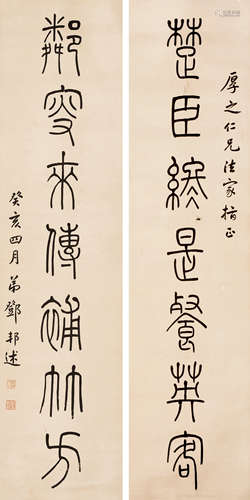 厚之仁兄法家指正
楚臣終是餐英客
鄰叟來傳補竹方
癸亥四月 弟鄧邦述